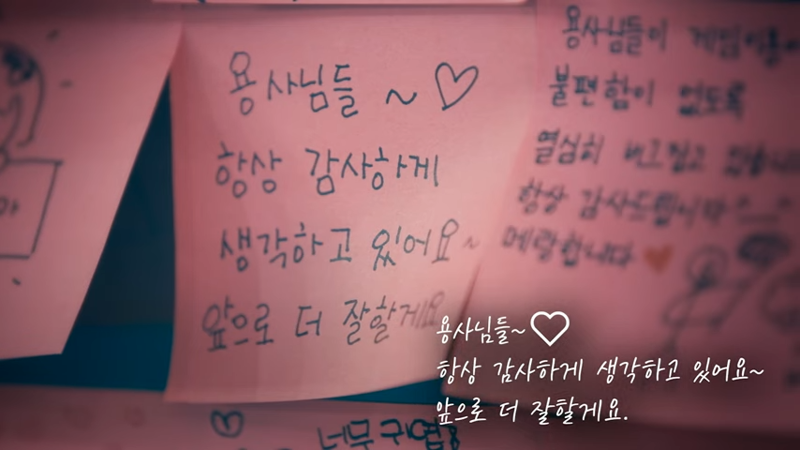 용사님들 ~ ♡
항상 감사하게
생각하고 있어요~
앞으로 더 잘할게요
용사님들이 게임이용에
불편함이 없도록
열심히 버그잡고 있습니다
항상 감사드립니다 ^__^
메랑합니다 ♥
♡ 너무 귀엽
용사님들~♡
항상 감사하게 생각하고 있어요~
앞으로 더 잘할게요.